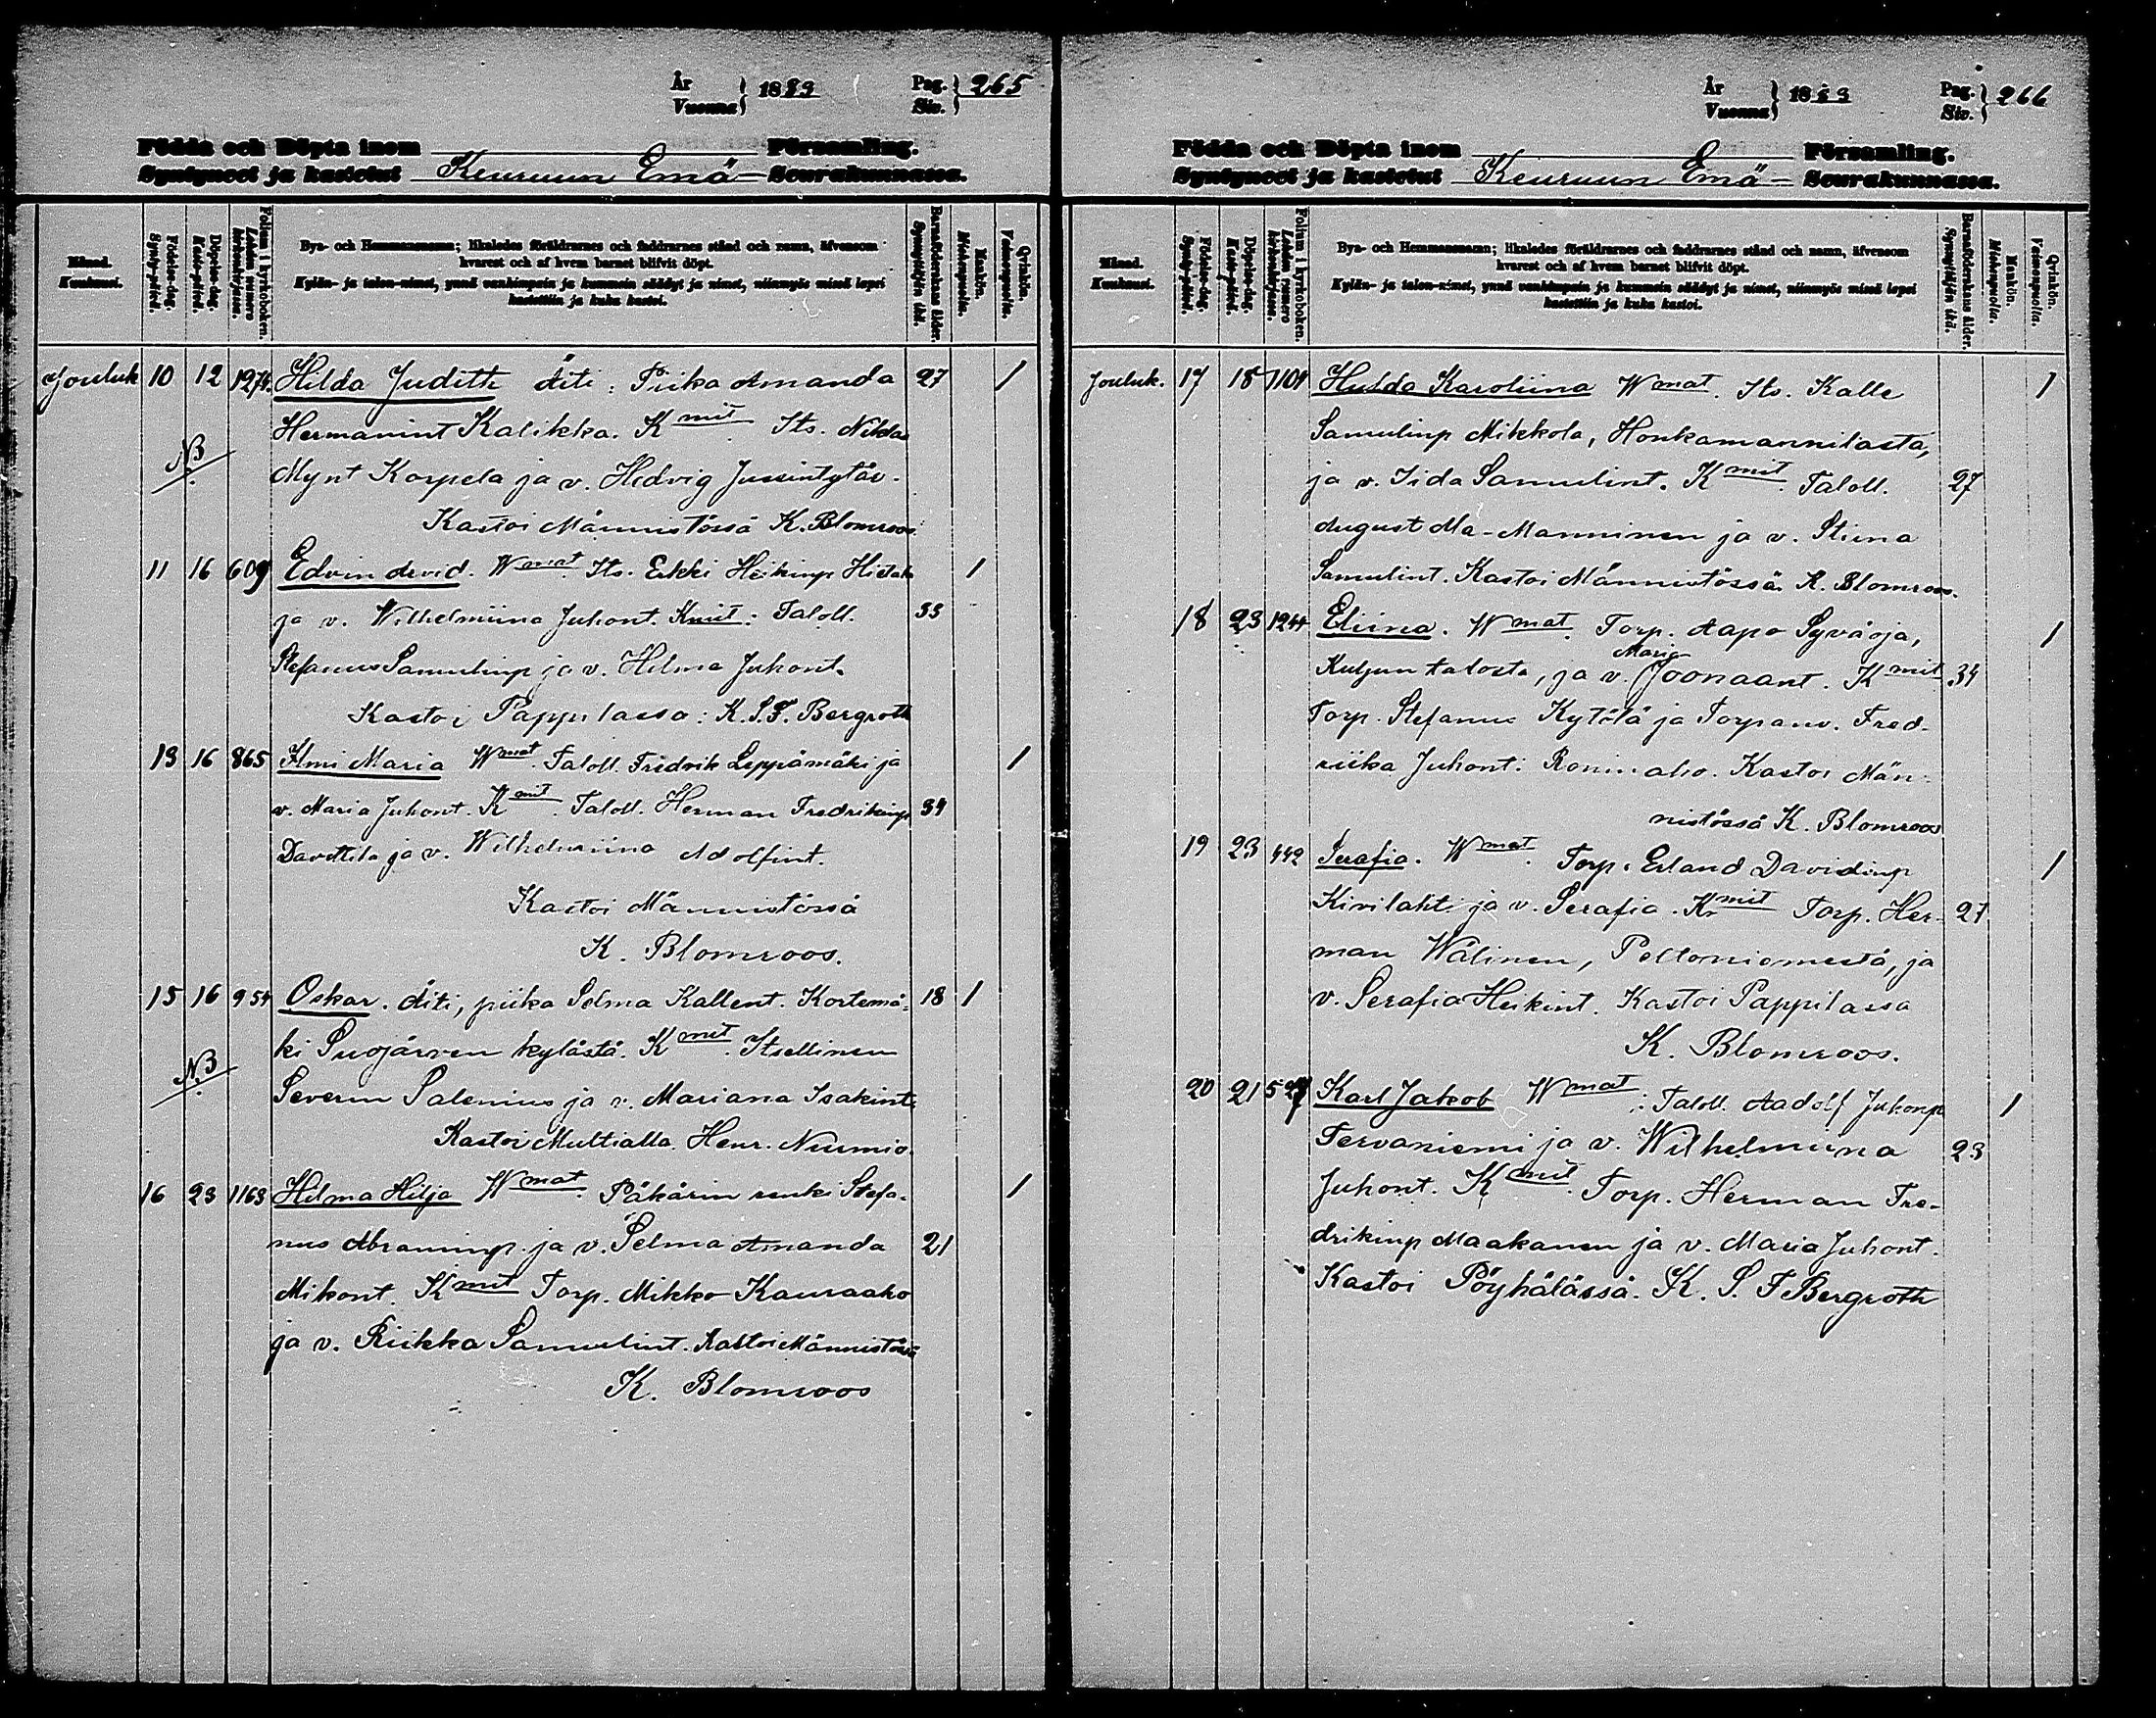 År
Vuonna } 1883 Pag.
Siv. } 265
Födda och Döpta inom Församling.
Syntyneet ja kastetut Keuruun Emä- Seurakunnassa.
Månad.
Kuukausi.
Födelse-dag.
Synty-päivä.
Döpelse-dag.
Kaste-päivä.
Folium i kyrkoboken.
Lehden numero
kirkonkirjassa.
Bya- och Hemmansnamn; likaledes föräldrarnes och faddrarnes stånd och namn, äfvensom
hvarest och af hvem barnet blifvit döpt.
Kylän- ja talon-nimet, ynnä vanhimpain ja kummein säädyt ja nimet, niinmyös missä lapsi
kastettiin ja kuka kastoi.
Barnaföderskans ålder.
Synnyttäjän ikä.
Mankön.
Miehenpuolia.
Qvinkön.
Vaimonpuolia.
Jouluk 10 12 1274. Hilda Judith Äiti: Piika Amanda 27 1
Hermanint Kalikka. K mit Its. Niklas
NB
Mynt Korpela ja v. Hedvig Jussintytär.
Kastoi Männistössä K. Blomroos
11 16 609 Edvin Arvid. W mat. Its. Erkki Heikinp Hietala 1
ja v. Wilhelmiina Juhont. Kmit: Taloll. 33
Stefanus Samulinp ja v. Hilma Juhont.
Kastoi Pappilassa: K. S. F. Bergroth
13 16 865 Ilmi Maria W mat. Taloll. Fredrik Leppämäki ja 1
v. Maria Juhont. K mit. Taloll. Herman Fredrikinp 34
Davittila ja v. Wilhelmiina Adolfint.
Kastoi Männistössä
K. Blomroos.
15 16 954 Oskar. Äiti, piika Selma Kallent. Kortemä- 18 1
ki Suojärven kylästä. K mit. Itsellinen
NB
Severin Salenius ja v. Mariana Isakint.
Kastoi Multialla Henr. Nurmio.
16 23 1163 Hilma Hilja W mat. Päkärin renki Stefa- 1
nus Abraminp. ja v. Selma Amanda 21
Mikont. K mit Torp. Mikko Kauraaho
ja v. Riikka Samuelint. Kastoi Männistössä
K. Blomroos
År
Vuonna } 1883 Pag.
Siv. } 266
Födda och Döpta inom Församling.
Syntyneet ja kastetut Keuruun Emä- Seurakunnassa.
Månad.
Kuukausi.
Födelse-dag.
Synty-päivä.
Döpelse-dag.
Kaste-päivä.
Folium i kyrkoboken.
Lehden numero
kirkonkirjassa.
Bya- och Hemmansnamn; likaledes föräldrarnes och faddrarnes stånd och namn, äfvensom
hvarest och af hvem barnet blifvit döpt.
Kylän- ja talon-nimet, ynnä vanhimpain ja kummein säädyt ja nimet, niinmyös missä lapsi
kastettiin ja kuka kastoi.
Barnaföderskans ålder.
Synnyttäjän ikä.
Mankön.
Miehenpuolia.
Qvinkön.
Vaimonpuolia.
Jouluk. 17 18 1101 Hulda Karoliina W mat. Its. Kalle 1
Samulinp Mikkola, Honkamannilasta,
ja v. Iida Samulint. K mit. Taloll. 27
August Ala-Manninen ja v. Stiina
Samulint. Kastoi Männistössä K. Blomroos.
18 23 1244 Eliina. W mat. Torp. Aapo Syväoja, 1
Maria
Kuljun talosta, ja v. Joonaant. K mit 34
Torp. Stefanus Kytölä ja Torpanv. Fred-
riika Juhont: Roninaho. Kastoi Män-
nistössä K. Blomroos
19 23 442 Serafia. W mat. Torp. Erland Davidinp 1
Kivilahti ja v. Serafia. K mit Torp. Her- 27
man Wälinen, Peltoniemestä, ja
v. Serafia Heikint. Kastoi Pappilassa
K. Blomroos.
20 21 527 Karl Jakob W mat: Taloll. Aadolf Juhonp 1
Tervaniemi ja v. Wilhelmiina 23
Juhont. K mit. Torp. Herman Fre-
drikinp Maakanen ja v. Maria Juhont.
Kastoi Pöyhälässä. K. S. F Bergroth